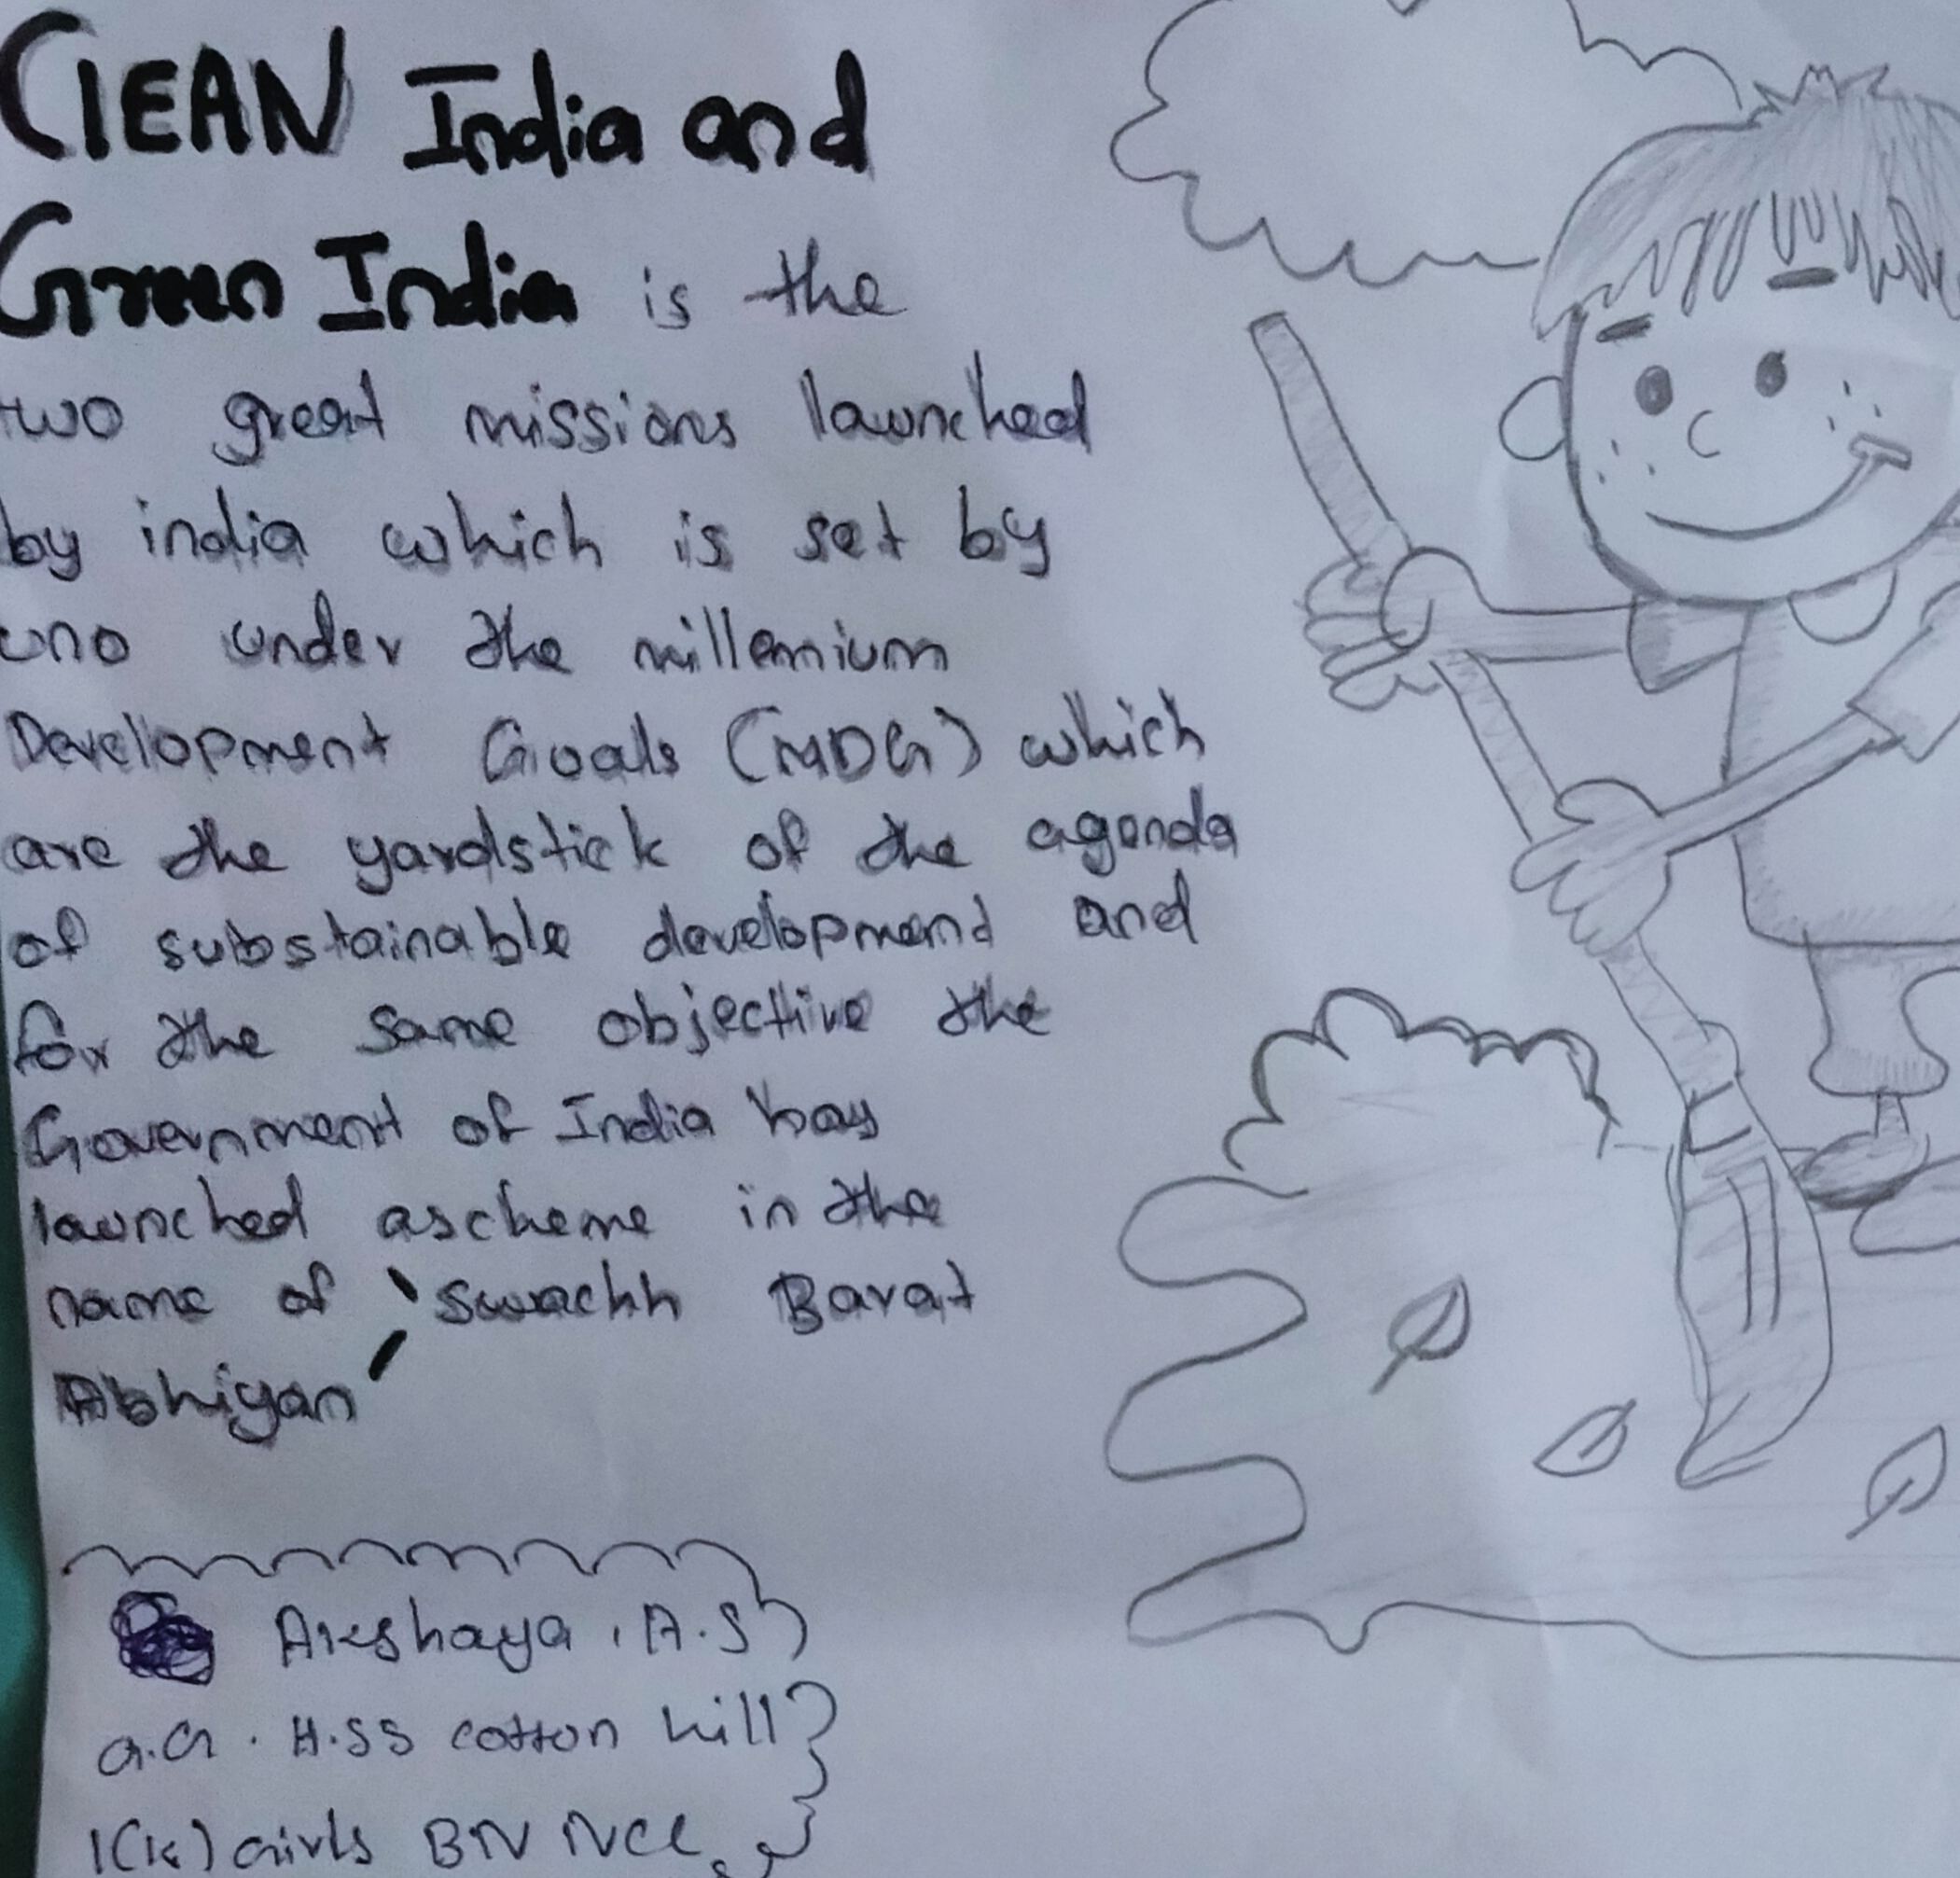 CLEAN India and
Green India is the
two great missions launched
by india which is set by
uno under the millemium
Development Goals (MDG) which
are the yardstick of the agenda
of substainable developmend and
for the same objective the
Government of India hay
launched ascheme in the
name of 'Swachh Barat
Abhiyan'
Akshaya . A.S
G.G. H.SS cotton hill
1(K) Girls BN NCC